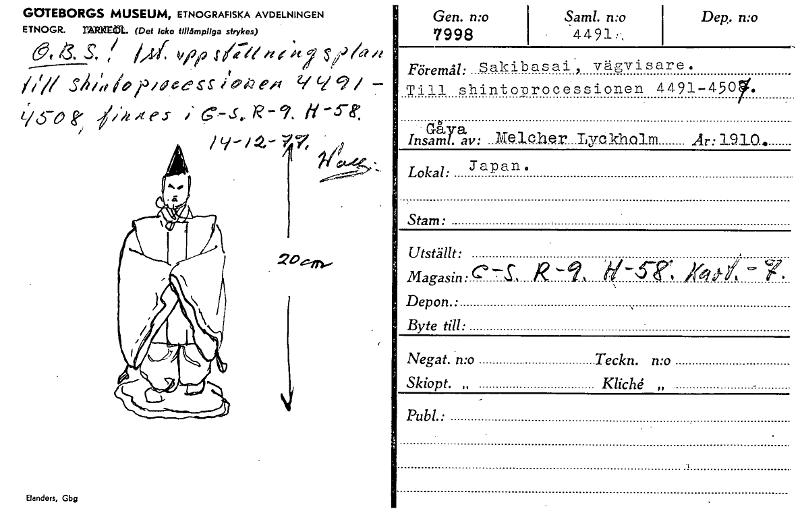 GÖTEBORGS MUSEUM, ETNOGRAFISKA AVDELNINGEN
ETNOGR. (Det icke tillämpliga strykes)
O.B.S.! 1 st. uppställningsplan
till shintoprocessionen 4491-
4508, finnes i C-S. R-9. H-58.
14-12-77.
20 cm
Elanders, Gbg
Gen. n:o Saml. n:o Dep. n:o
7998 4491.
Föremål: Sakibasai, vägvisare.
Till shintoprocessionen 4491-4507.
Gåva
Insaml. av: Melcher Lyckholm År: 1910.
Lokal: Japan.
Stam:
Utställt:
Magasin: C-S. R-9. H-58. Kart.-7.
Depon.:
Byte till:
Negat. n:o Teckn. n:o
Skiopt. „ Kliché „
Publ.: